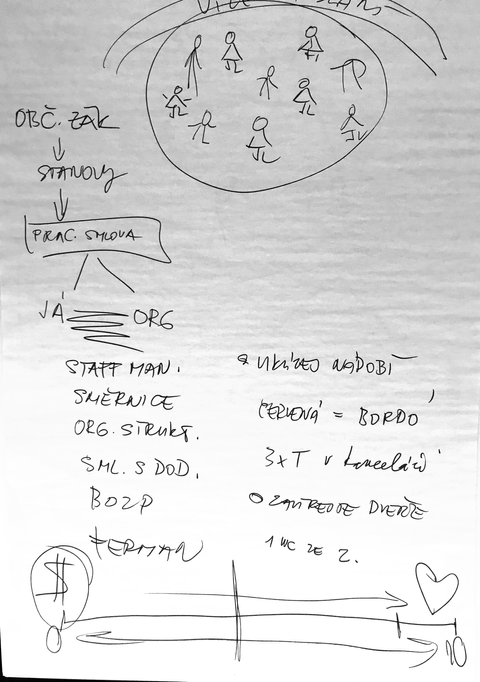 OBČ. ZÁK
STANOVY
PRAC. SMLOVA
JÁ
ORG
STAFF MAN.
SMĚRNICE
ORG. STRUKT.
SML. S DOD.
BOZP
FERMAN
UKLIZEO NÁDOBÍ
ČERVOVÁ = BORDÓ
3xT v kanceláři
ZAVŘENÉ DVEŘE
1 WC ZE 2.
$
0
10